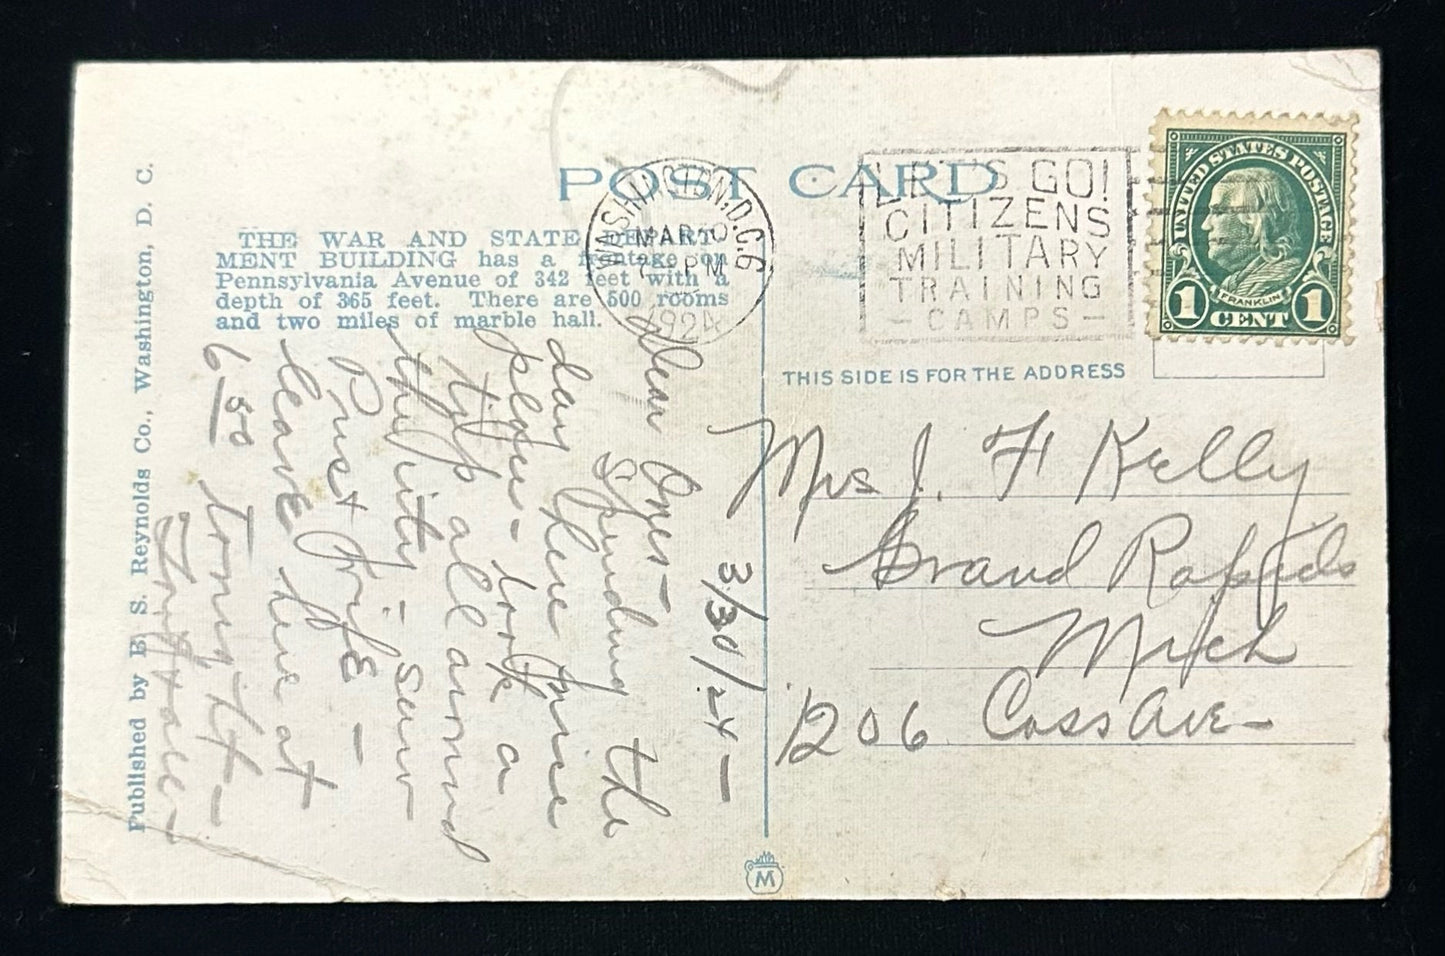 POST CARD
THE WAR AND STATE DEPART-
MENT BUILDING has a frontage on
Pennsylvania Avenue of 342 feet with a
depth of 365 feet. There are 500 rooms
and two miles of marble hall.
Published by B. S. Reynolds Co., Washington, D. C.
WASHINGTON, D.C. 6
MAR 30
PM
1924
LET'S GO!
CITIZENS
MILITARY
TRAINING
- CAMPS -
UNITED STATES POSTAGE
FRANKLIN
1 CENT 1
THIS SIDE IS FOR THE ADDRESS
3/30/24 -
Dear Ones -
Spending the
day here fine
place - took a
trip all around
the city - saw
Pres + wife -
leave here at
6 50 tonight -
Mrs J. F Kelly
Grand Rapids
Mich
1206 Cass Ave -
M